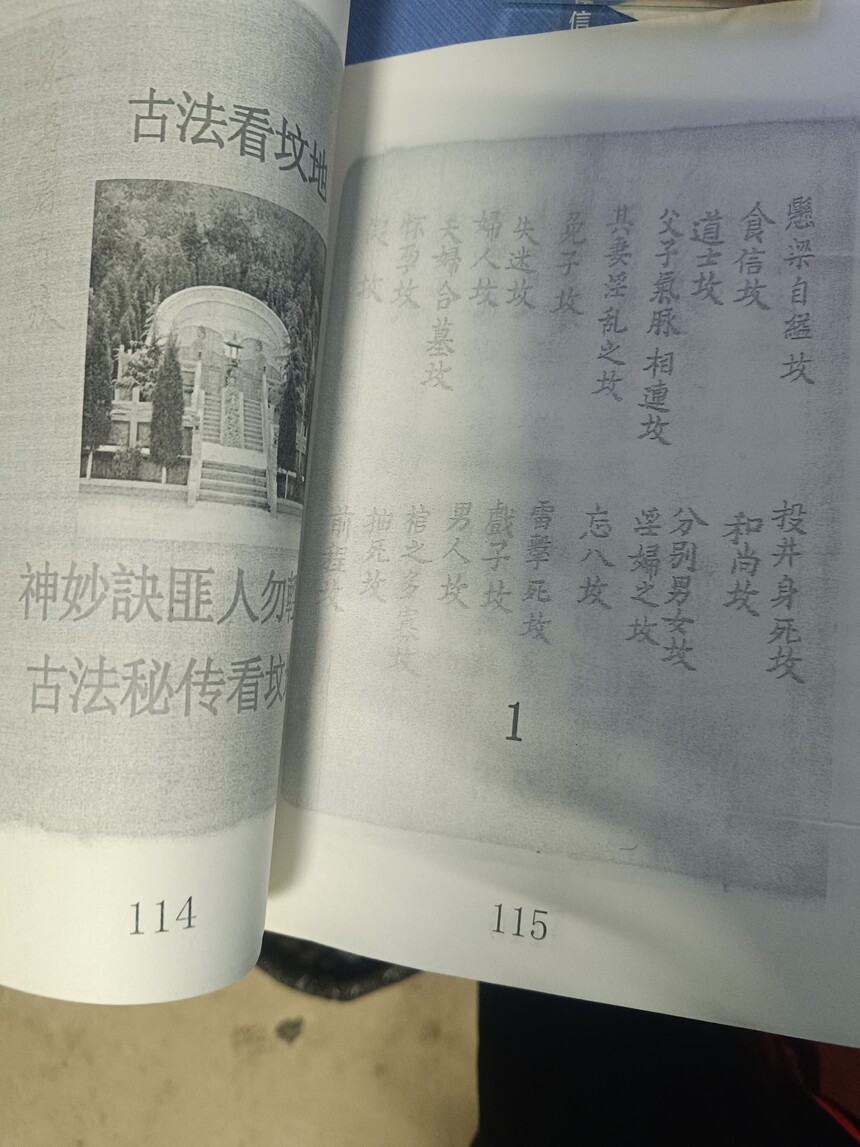 信
古法看坟地
神妙訣匪人勿
古法秘传看坟
114
懸梁自縊坟
食信坟
道士坟
父子氣脉相連坟
其妻淫乱之坟
失迷坟
婦人坟
夫婦合墓坟
怀孕坟
投井身死坟
和尚坟
分别男女坟
淫婦之坟
忘八坟
雷擊死坟
戲子坟
男人坟
棺之多寡坟
1
115